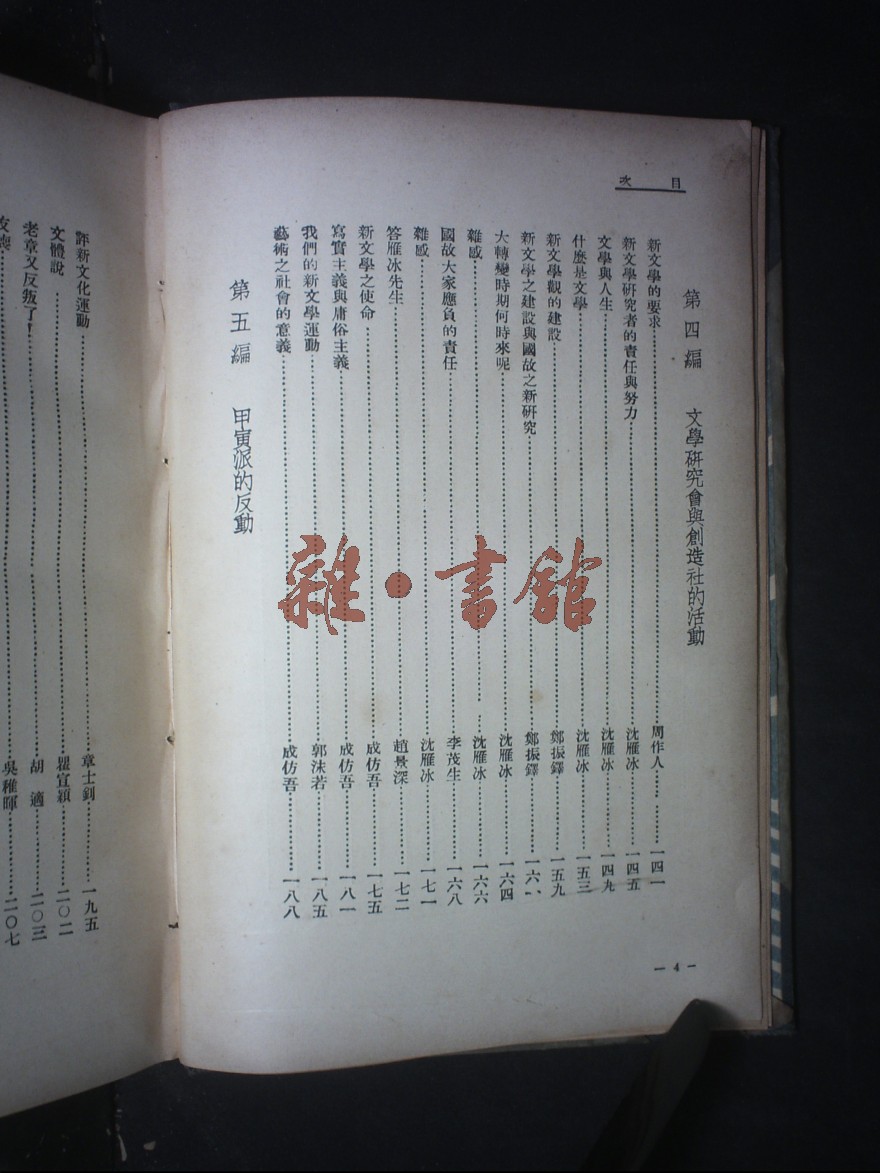 目次
第四編　文學研究會與創造社的活動
新文學的要求……周作人……一四一
新文學研究者的責任與努力……沈雁冰……一四五
文學與人生……沈雁冰……一四九
什麼是文學……沈雁冰……一五三
新文學觀的建設……鄭振鐸……一五九
新文學之建設與國故之新研究……鄭振鐸……一六一
大轉變時期何時來呢……沈雁冰……一六四
雜感……沈雁冰……一六六
國故大家應負的責任……李茂生……一六八
雜感……沈雁冰……一七一
答雁冰先生……趙景深……一七二
新文學之使命……成仿吾……一七五
寫實主義與庸俗主義……成仿吾……一八一
我們的新文學運動……郭沫若……一八五
藝術之社會的意義……成仿吾……一八八
第五編　甲寅派的反動
— 4 —
評新文化運動……章士釗……一九五
文體說……瞿宣穎……二〇二
老章又反叛了！……胡適……二〇三
友喪……吳稚暉……二〇七
雜·書館